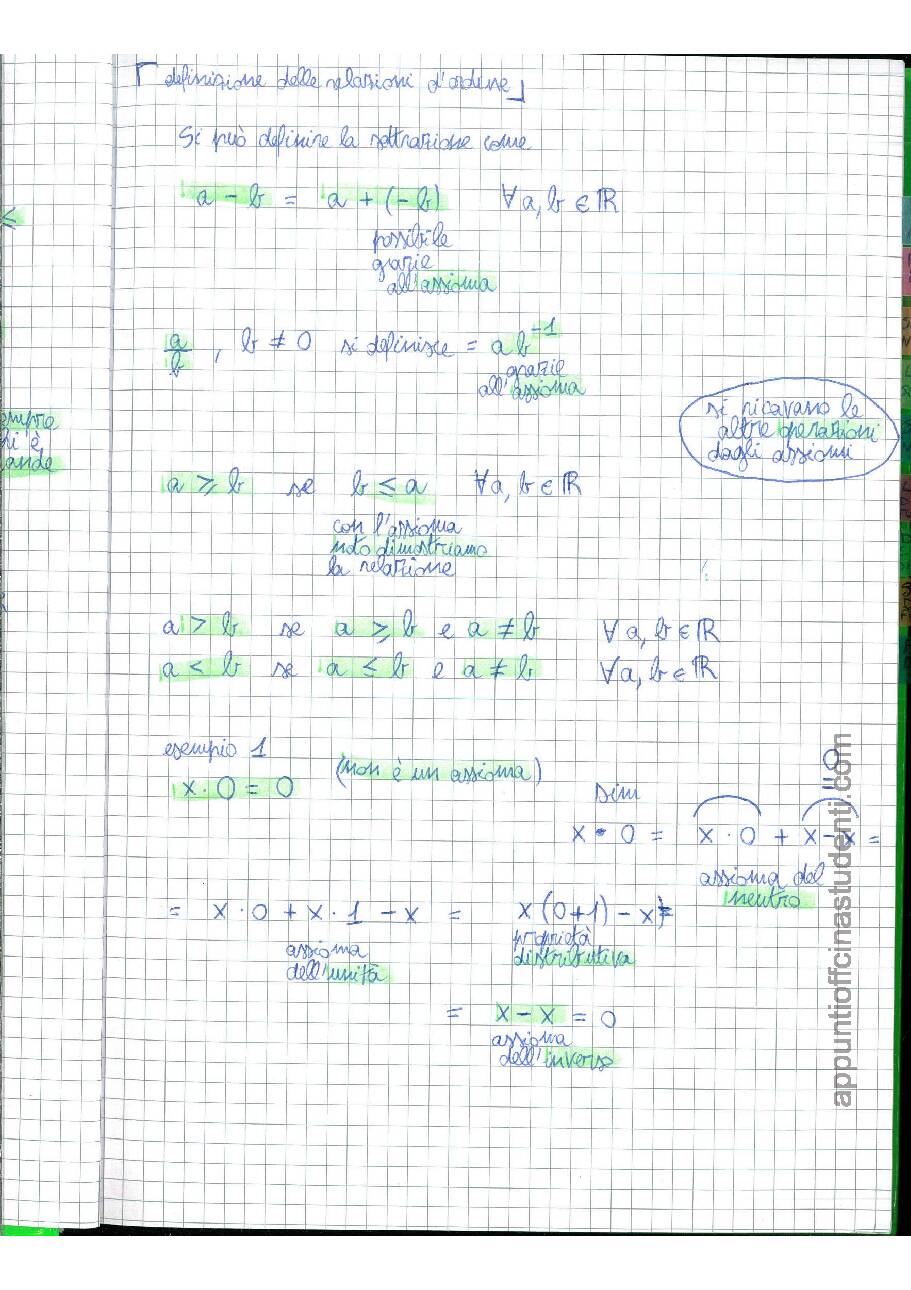 「definizione delle relazioni d'ordine」
Si può definire la sottrazione come
a - b = a + (-b) ∀ a, b ∈ ℝ
possibile
grazie
all'assioma
≤
a/b , b ≠ 0 si definisce = a b⁻¹
grazie
all'assioma
si ricavano le
altre operazioni
dagli assiomi
empre
ande
a ⩾ b se b ≤ a ∀ a, b ∈ ℝ
con l'assioma
dimostriamo
la relazione
a > b se a ⩾ b e a ≠ b ∀ a, b ∈ ℝ
a < b se a ≤ b e a ≠ b ∀ a, b ∈ ℝ
esempio 1
x · 0 = 0 (non è un assioma)
dim
= 0
x · 0 = x · 0 + x - x =
assioma del
neutro
= x · 0 + x · 1 - x = x (0+1) - x =
assioma
dell'unità
proprietà
distributiva
= x - x = 0
assioma
dell'inverso
appuntiofficinastudenti.com